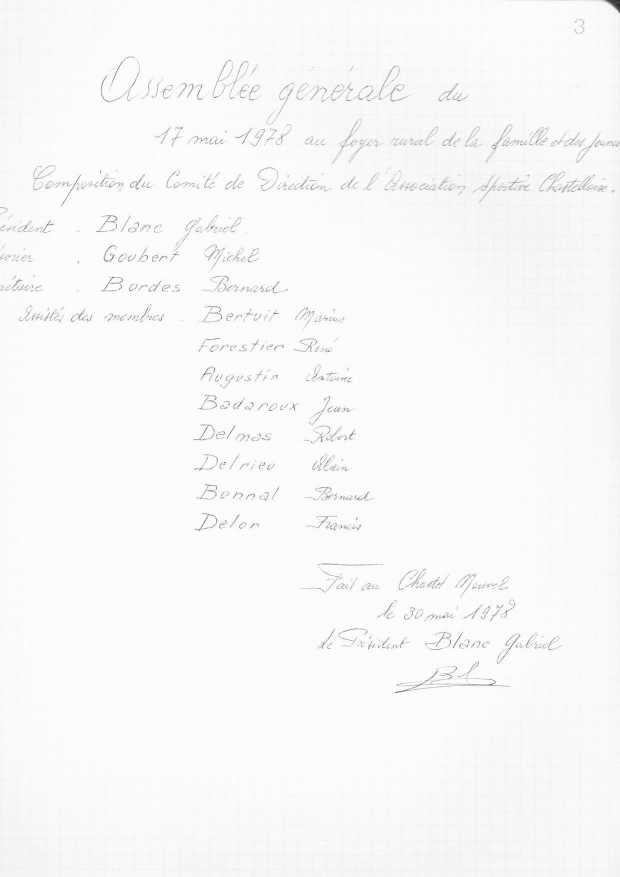 3
Assemblée générale du
17 mai 1978 au foyer rural de la famille et des jeunes
Composition du Comité de Direction de l'Association Sportive Chastelloise.
ésident . Blanc Gabriel.
sorier . Goubert Michel
rétaire . Bordes Bernard
Assistés des membres . Bertuit Marius
Forestier René
Augustin Antoine
Badaroux Jean
Delmas Robert
Delrieu Alain
Bonnal Bernard
Delor Francis
Fait au Chastel Nouvel
le 30 mai 1978
le Président Blanc Gabriel